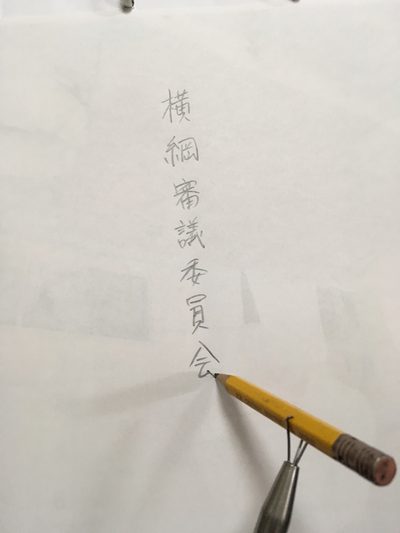 横綱審議委員会